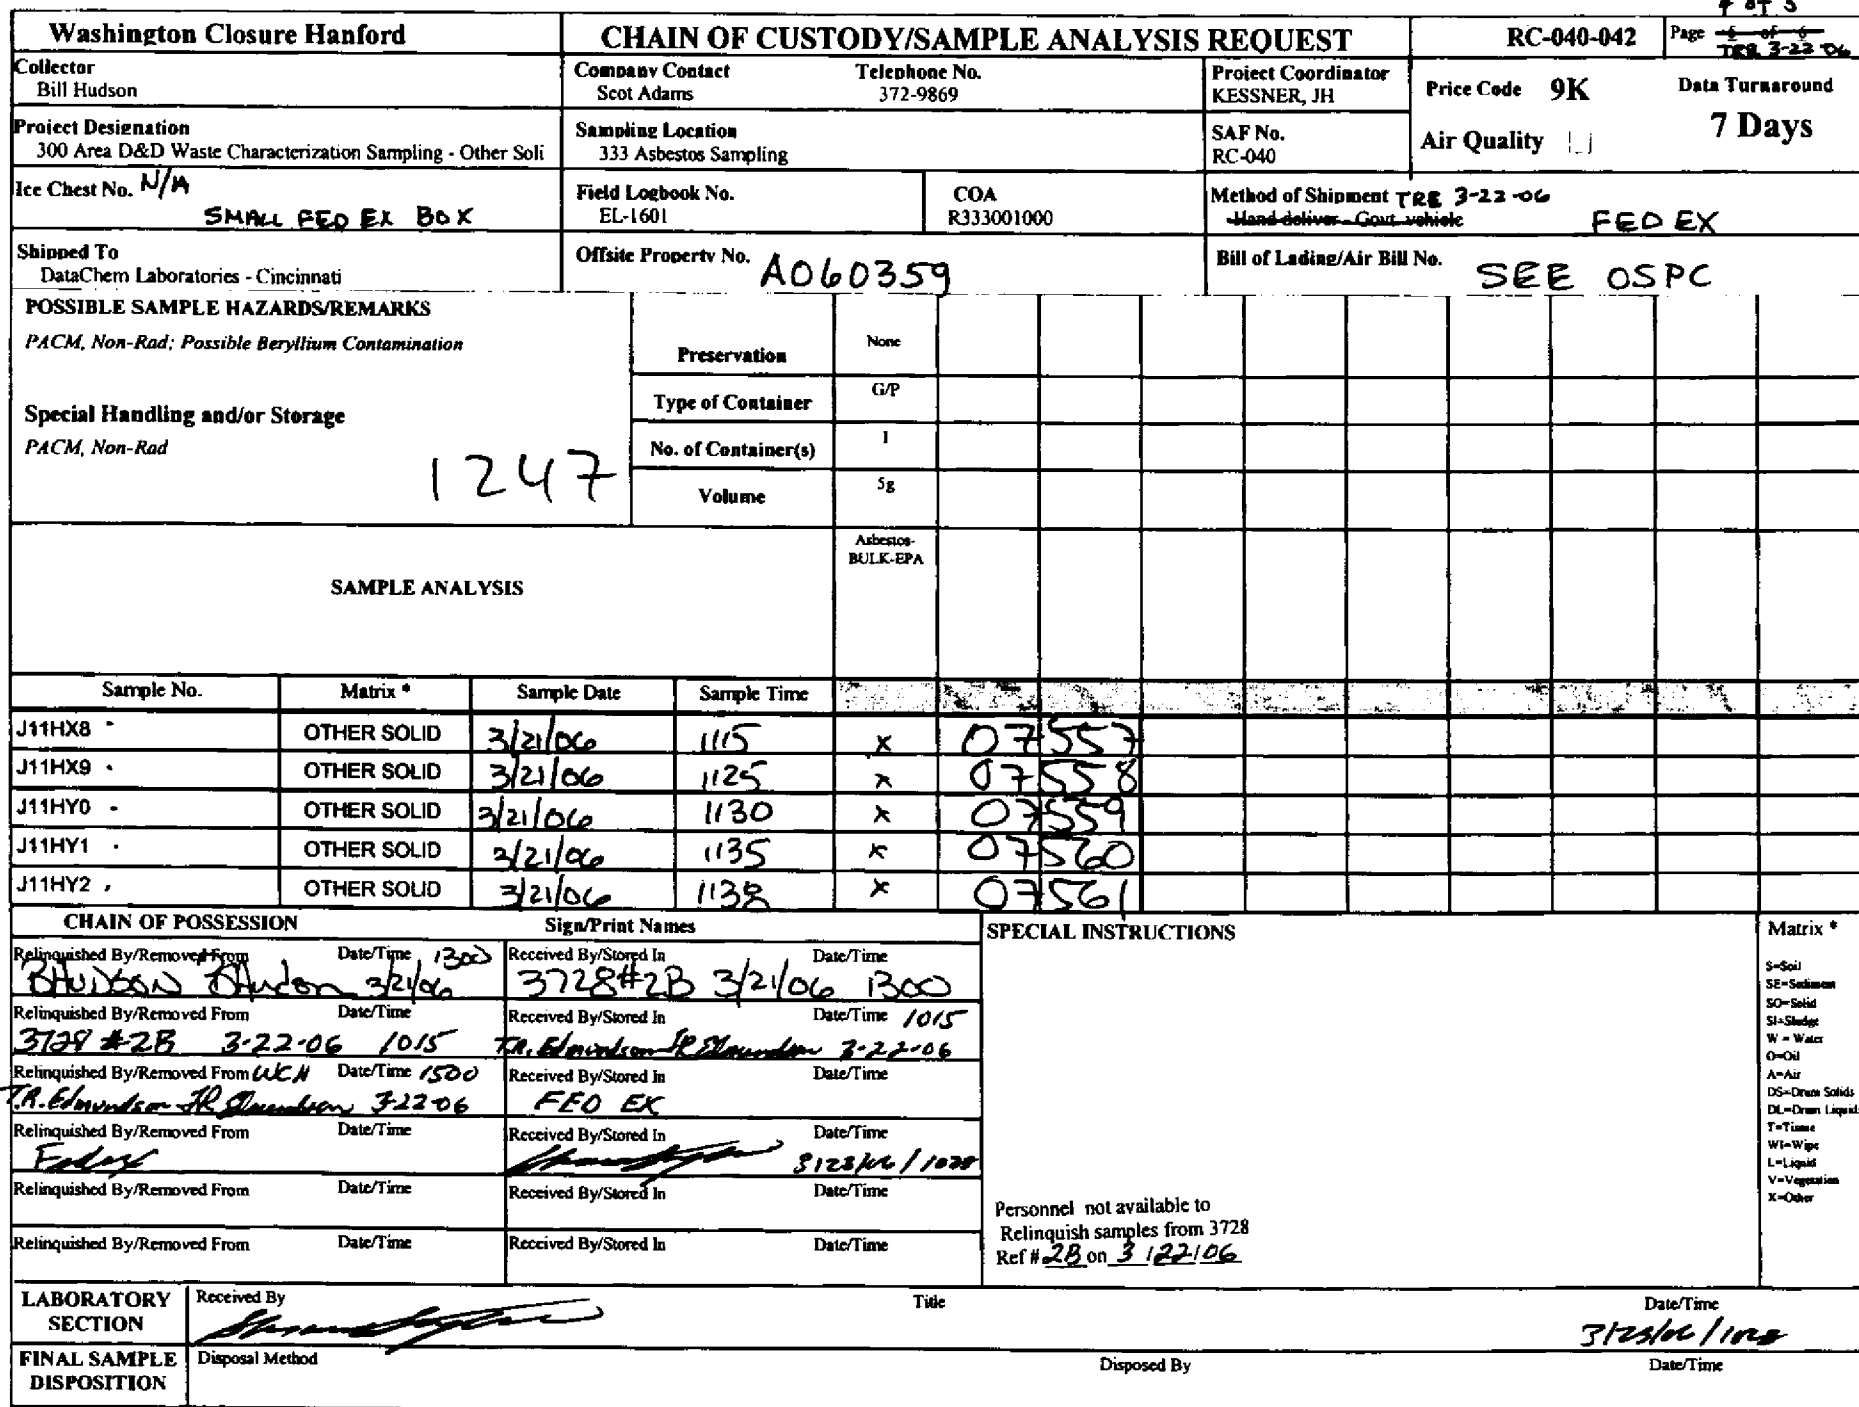 4 of 5
Washington Closure Hanford
CHAIN OF CUSTODY/SAMPLE ANALYSIS REQUEST
RC-040-042
Page
TRE 3-22-06
Collector
Bill Hudson
Company Contact
Scot Adams
Telephone No.
372-9869
Project Coordinator
KESSNER, JH
Price Code 9K
Data Turnaround
7 Days
Project Designation
300 Area D&D Waste Characterization Sampling - Other Soli
Sampling Location
333 Asbestos Sampling
SAF No.
RC-040
Air Quality
Ice Chest No. N/A
SMALL FED EX BOX
Field Logbook No.
EL-1601
COA
R333001000
Method of Shipment TRE 3-22-06
Hand deliver - Govt. vehicle FED EX
Shipped To
DataChem Laboratories - Cincinnati
Offsite Property No. A060359
Bill of Lading/Air Bill No. SEE OSPC
POSSIBLE SAMPLE HAZARDS/REMARKS
PACM, Non-Rad; Possible Beryllium Contamination
Special Handling and/or Storage
PACM, Non-Rad
1247
Preservation None
Type of Container G/P
No. of Container(s) 1
Volume 5g
SAMPLE ANALYSIS
Asbestos-
BULK-EPA
Sample No. Matrix * Sample Date Sample Time
J11HX8 OTHER SOLID 3/21/06 1115 x 07557
J11HX9 OTHER SOLID 3/21/06 1125 x 07558
J11HY0 OTHER SOLID 3/21/06 1130 x 07559
J11HY1 OTHER SOLID 3/21/06 1135 x 07560
J11HY2 OTHER SOLID 3/21/06 1138 x 07561
CHAIN OF POSSESSION Sign/Print Names
Relinquished By/Removed From Date/Time 1300
BHUDSON BHudson 3/21/06
Received By/Stored In Date/Time
3728#2B 3/21/06 1300
Relinquished By/Removed From Date/Time
3728 #2B 3-22-06 1015
Received By/Stored In Date/Time 1015
T.R. Edmundson TR Edmundson 3-22-06
Relinquished By/Removed From WCH Date/Time 1500
T.R. Edmundson TR Edmundson 3-22-06
Received By/Stored In Date/Time
FED EX
Relinquished By/Removed From Date/Time
Fedex
Received By/Stored In Date/Time
3/23/06 / 1028
Relinquished By/Removed From Date/Time
Received By/Stored In Date/Time
Relinquished By/Removed From Date/Time
Received By/Stored In Date/Time
SPECIAL INSTRUCTIONS
Personnel not available to
Relinquish samples from 3728
Ref # 2B on 3 /22/06
Matrix *
S=Soil
SE=Sediment
SO=Solid
Sl=Sludge
W = Water
O=Oil
A=Air
DS=Drum Solids
DL=Drum Liquid
T=Tissue
WI=Wipe
L=Liquid
V=Vegetation
X=Other
LABORATORY
SECTION
Received By
Title
Date/Time
3/23/06 / 1028
FINAL SAMPLE
DISPOSITION
Disposal Method
Disposed By
Date/Time